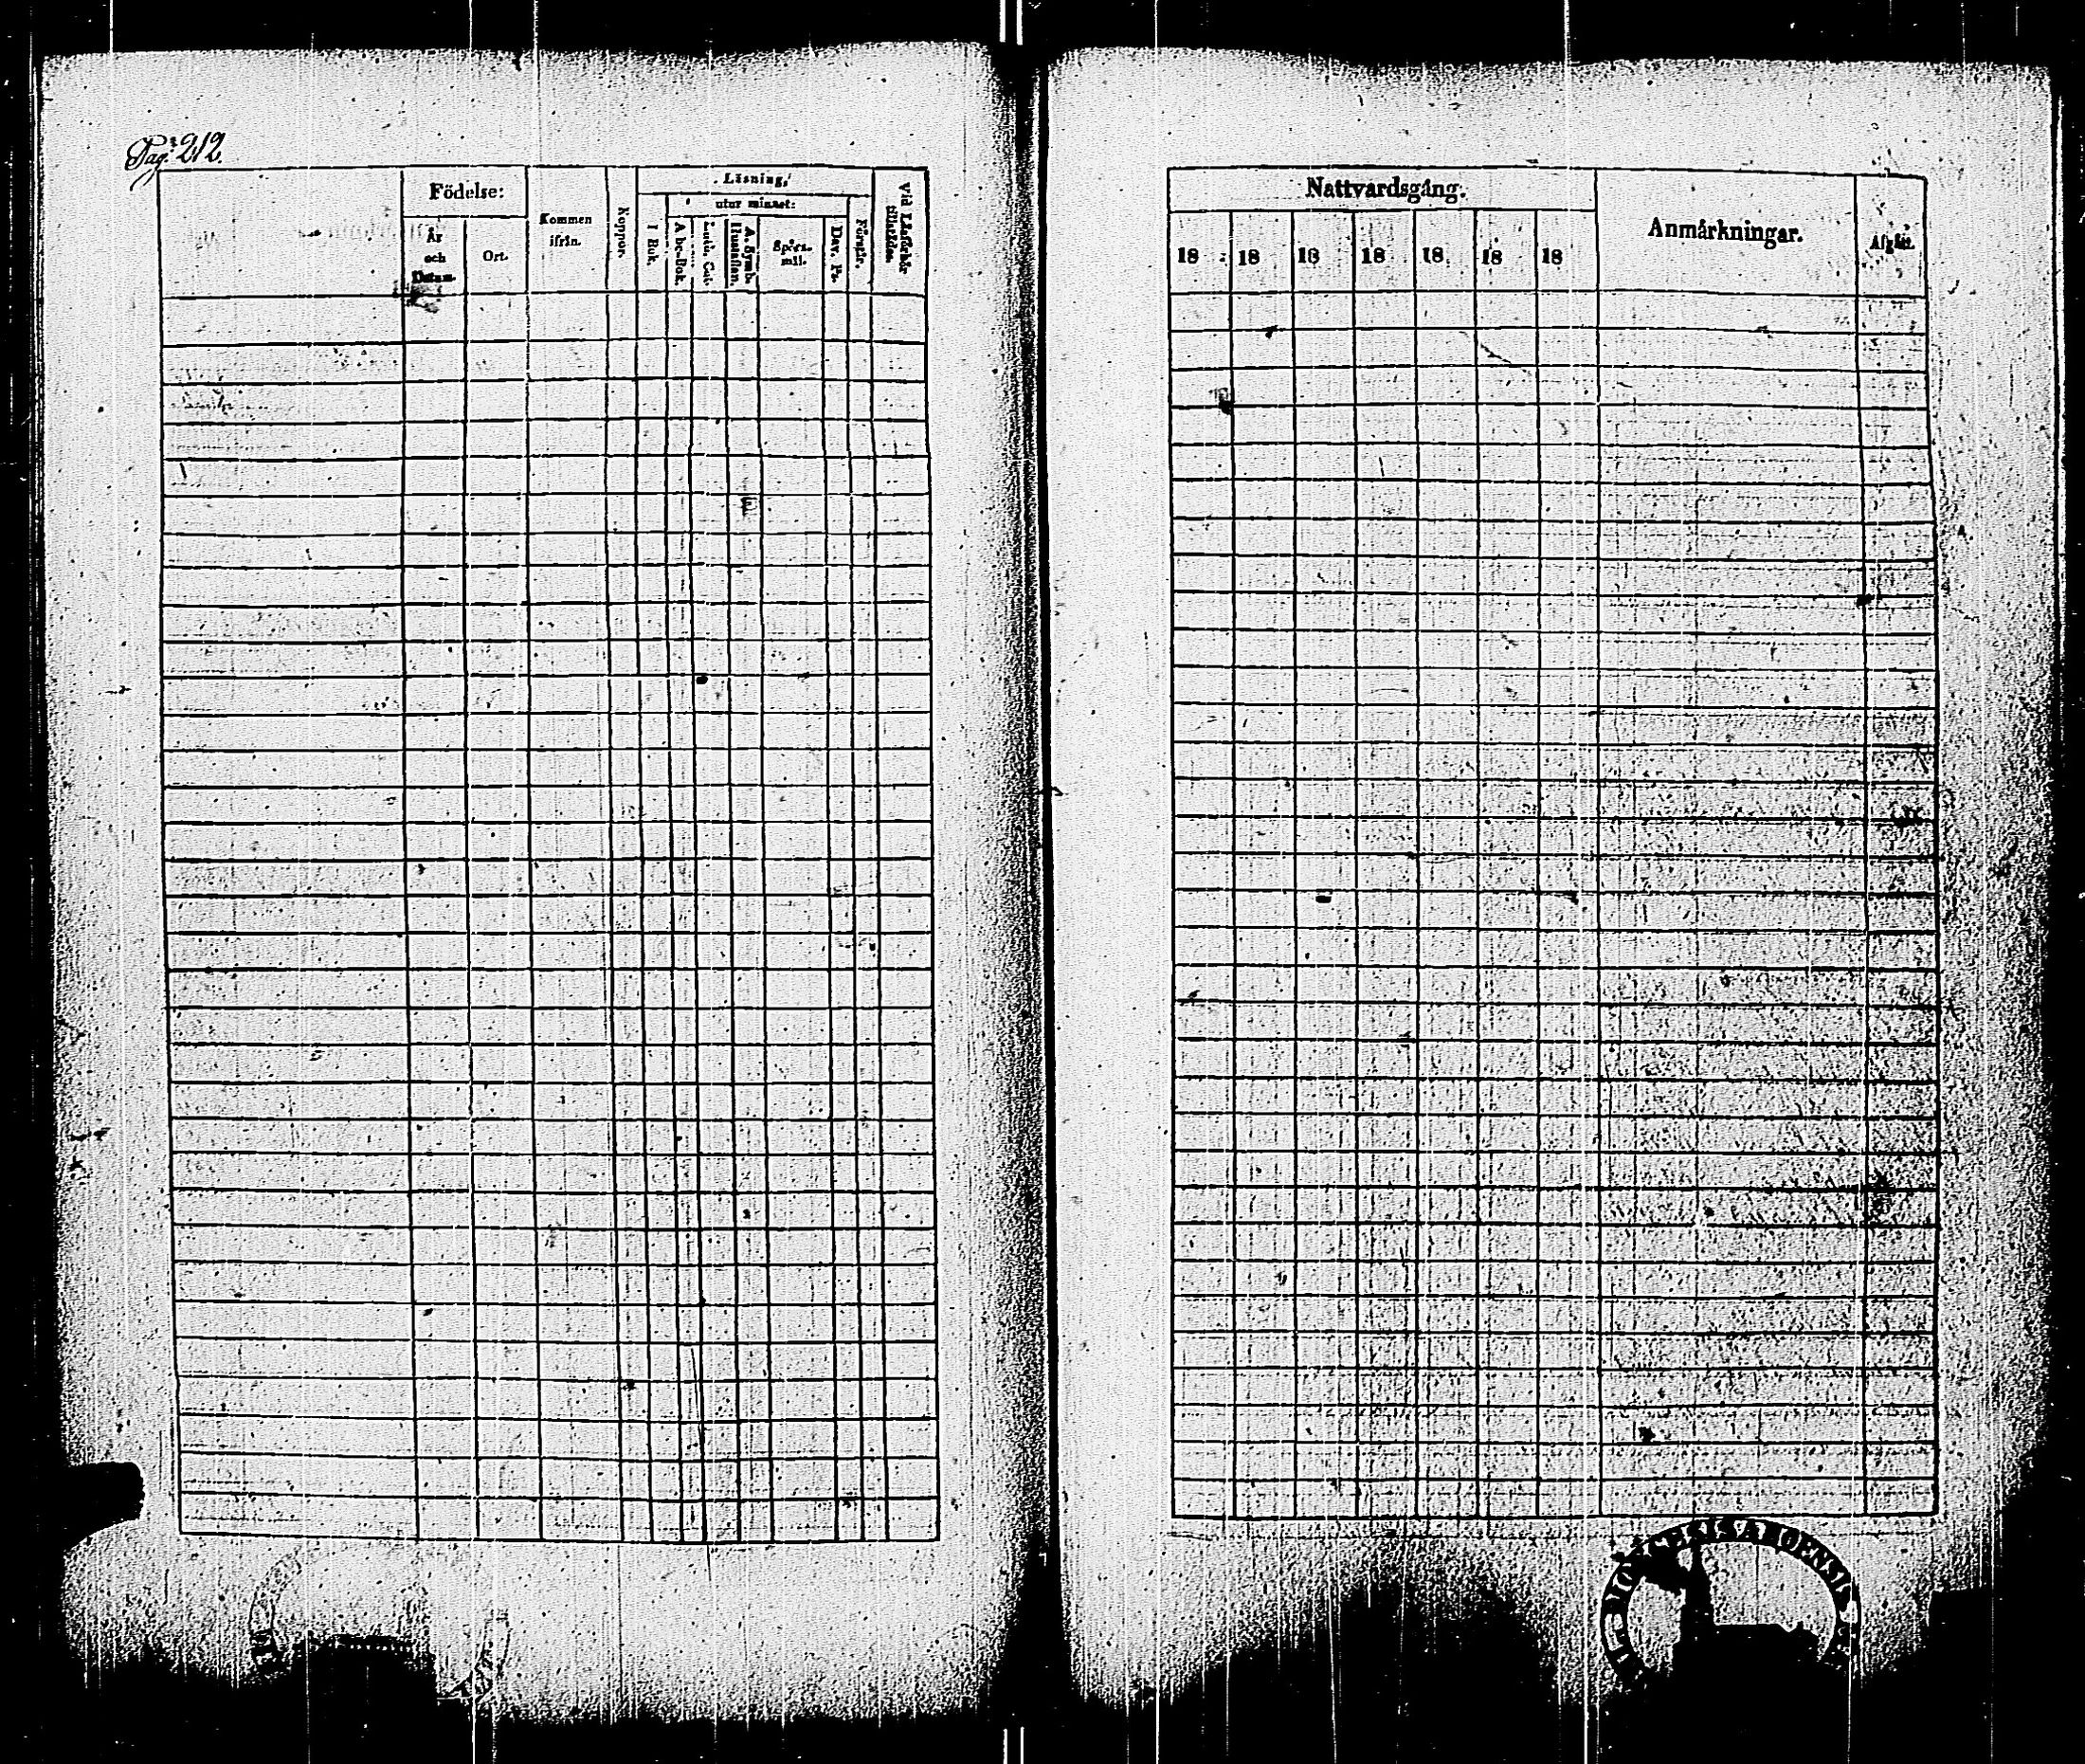 Pag: 212.
Födelse:
År och Datum.
Ort.
Kommen ifrån.
Koppor.
Läsning,
utur minnet:
I Bok.
A bc-Bok.
Luth. Cat.
A. Symb. Hustaflan.
Spörs-mål.
Dav. Ps.
Förstår.
Vid Läsförhör tillstädes.
Nattvardsgång.
18 18 18 18 18 18 18
Anmärkningar.
Afgått.